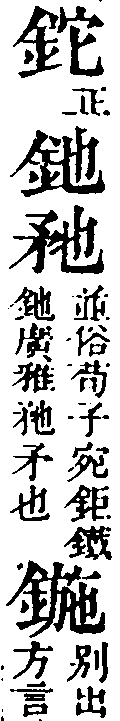 鉈
正
釶
並俗荀子宛鉅鐵
釶廣雅矛也
鍦
別出
方言